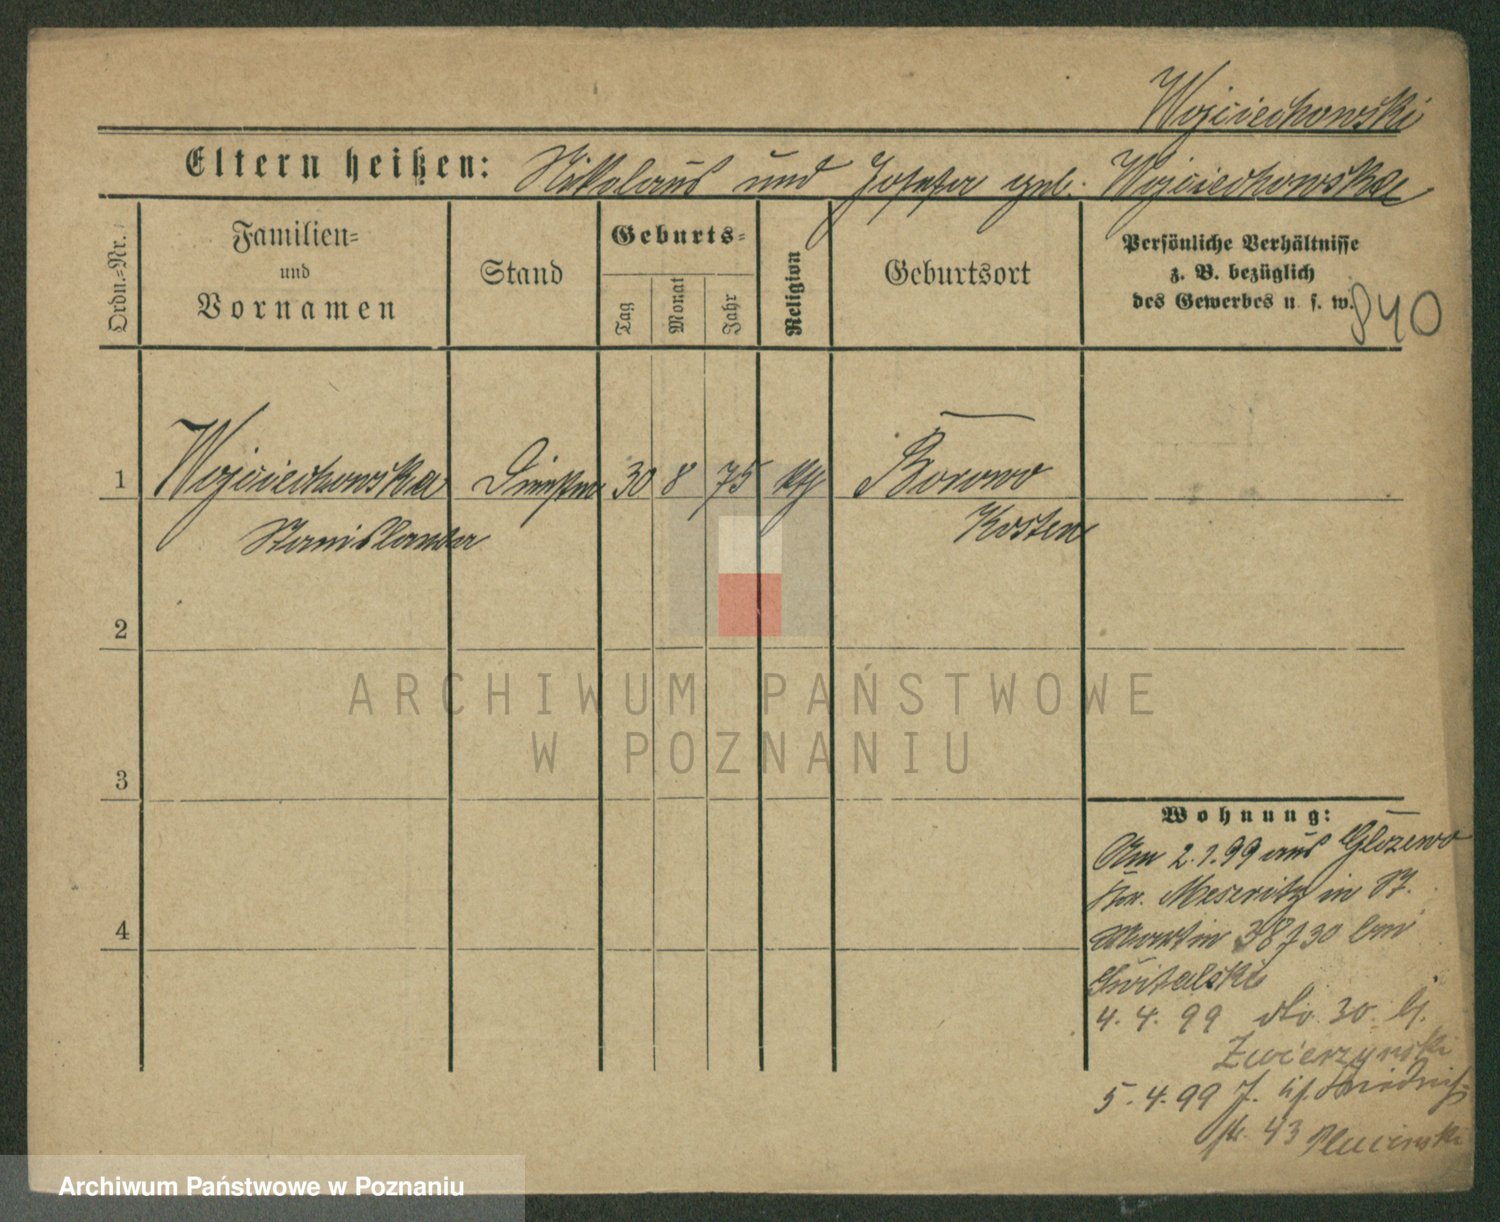 Wojciechowski
Eltern heißen: Nikolaus und Josefa geb. Wojciechowska
Ordn.=Nr.
Familien=
und
Vornamen
Stand
Geburts=
Tag
Monat
Jahr
Religion
Geburtsort
Persönliche Verhältnisse
z. B. bezüglich
des Gewerbes u. s. w.
840
1 Wojciechowska 30 8 75 kth Borowo
Stanislawa Kosten
2
ARCHIWUM PAŃSTWOWE
W POZNANIU
3
Wohnung:
Am 2.1.99 aus Glozewo
Kr. Meseritz in St.
Martin 38 30 bei
Switalski
4. 4. 99 dto 30. b.
Zwierzynski
5. 4. 99 J.
43
4
Archiwum Państwowe w Poznaniu